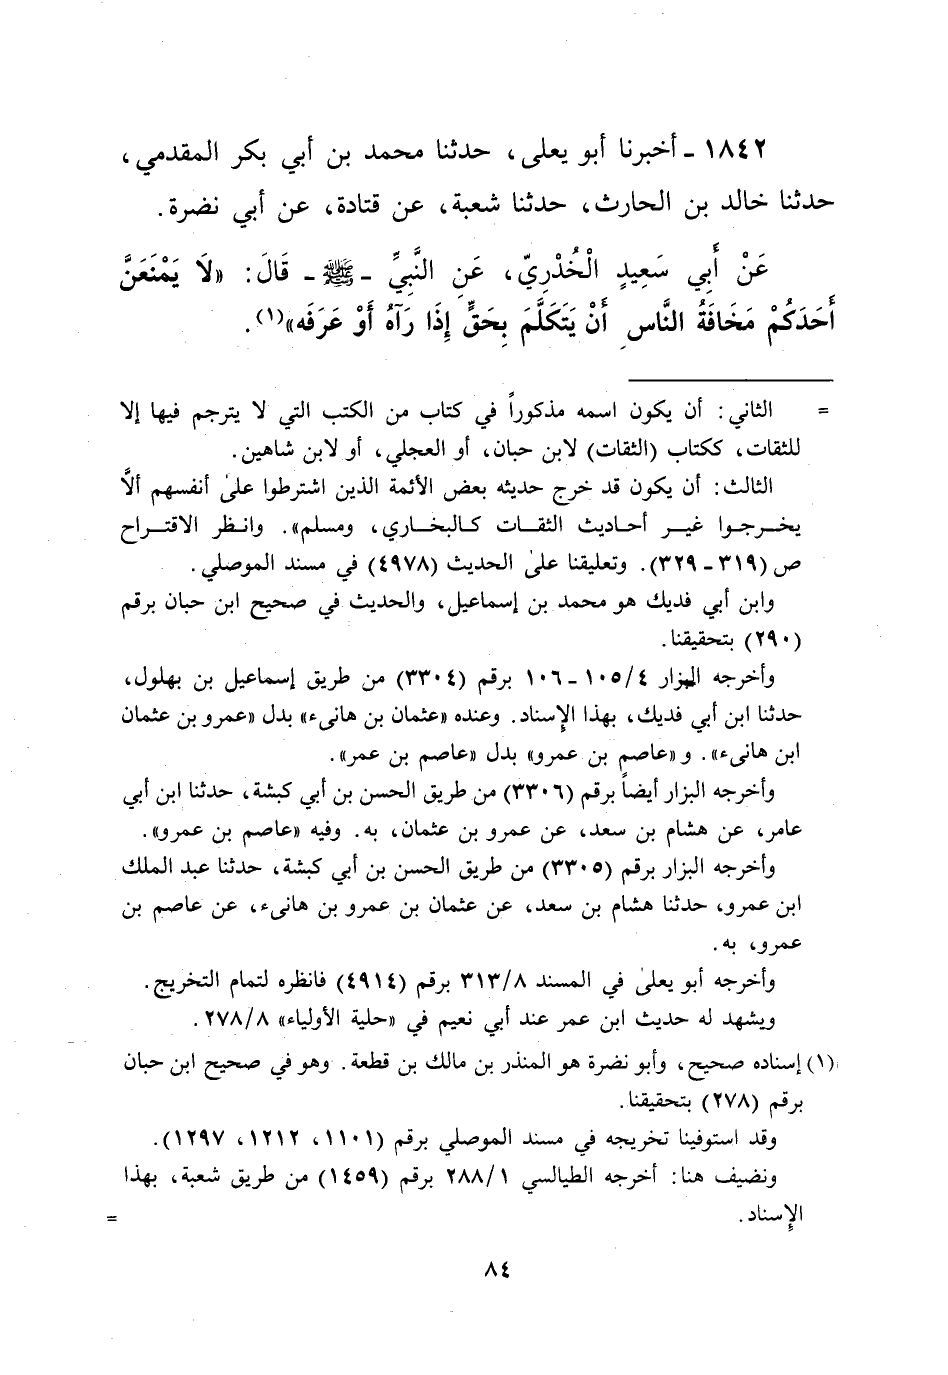 ١٨٤٢ - أخبرنا أبو يعلى، حدثنا محمد بن أبي بكر المقدمي،
حدثنا خالد بن الحارث، حدثنا شعبة، عن قتادة، عن أبي نضرة.
عَنْ أَبِي سَعِيدٍ الْخُدْرِيِّ، عَنِ النَّبِيِّ - ﷺ - قَالَ: «لَا يَمْنَعَنَّ
أَحَدَكُمْ مَخَافَةُ النَّاسِ أَنْ يَتَكَلَّمَ بِحَقٍّ إِذَا رَآهُ أَوْ عَرَفَه»(١).
= الثاني: أن يكون اسمه مذكوراً في كتاب من الكتب التي لا يترجم فيها إلا
للثقات، ككتاب (الثقات) لابن حبان، أو العجلي، أو لابن شاهين.
الثالث: أن يكون قد خرج حديثه بعض الأئمة الذين اشترطوا على أنفسهم ألاَّ
يخرجوا غير أحاديث الثقات كالبخاري، ومسلم». وانظر الاقتراح
ص (٣١٩ - ٣٢٩). وتعليقنا على الحديث (٤٩٧٨) في مسند الموصلي.
وابن أبي فديك هو محمد بن إسماعيل، والحديث في صحيح ابن حبان برقم
(٢٩٠) بتحقيقنا.
وأخرجه البزار ٤/ ١٠٥ - ١٠٦ برقم (٣٣٠٤) من طريق إسماعيل بن بهلول،
حدثنا ابن أبي فديك، بهذا الإسناد. وعنده «عثمان بن هانىء» بدل «عمرو بن عثمان
ابن هانىء». و «عاصم بن عمرو» بدل «عاصم بن عمر».
وأخرجه البزار أيضاً برقم (٣٣٠٦) من طريق الحسن بن أبي كبشة، حدثنا ابن أبي
عامر، عن هشام بن سعد، عن عمرو بن عثمان، به. وفيه «عاصم بن عمرو».
وأخرجه البزار برقم (٣٣٠٥) من طريق الحسن بن أبي كبشة، حدثنا عبد الملك
ابن عمرو، حدثنا هشام بن سعد، عن عثمان بن عمرو بن هانىء، عن عاصم بن
عمرو، به.
وأخرجه أبو يعلى في المسند ٨/ ٣١٣ برقم (٤٩١٤) فانظره لتمام التخريج.
ويشهد له حديث ابن عمر عند أبي نعيم في «حلية الأولياء» ٨/ ٢٧٨.
(١) إسناده صحيح، وأبو نضرة هو المنذر بن مالك بن قطعة. وهو في صحيح ابن حبان
برقم (٢٧٨) بتحقيقنا.
وقد استوفينا تخريجه في مسند الموصلي برقم (١١٠١، ١٢١٢، ١٢٩٧).
ونضيف هنا: أخرجه الطيالسي ١/ ٢٨٨ برقم (١٤٥٩) من طريق شعبة، بهذا
الإسناد. =
٨٤